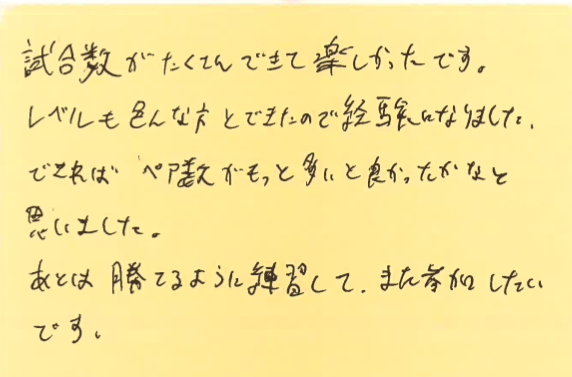 試合数がたくさんできて楽しかったです。
レベルも色んな方とできたので経験になりました。
できれば ペア数がもっと多いと良かったかなと
思いました。
あとは 勝てるように練習して、また参加したい
です。